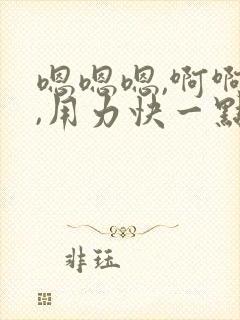 嗯嗯嗯,啊啊
,用力快一點
非珏